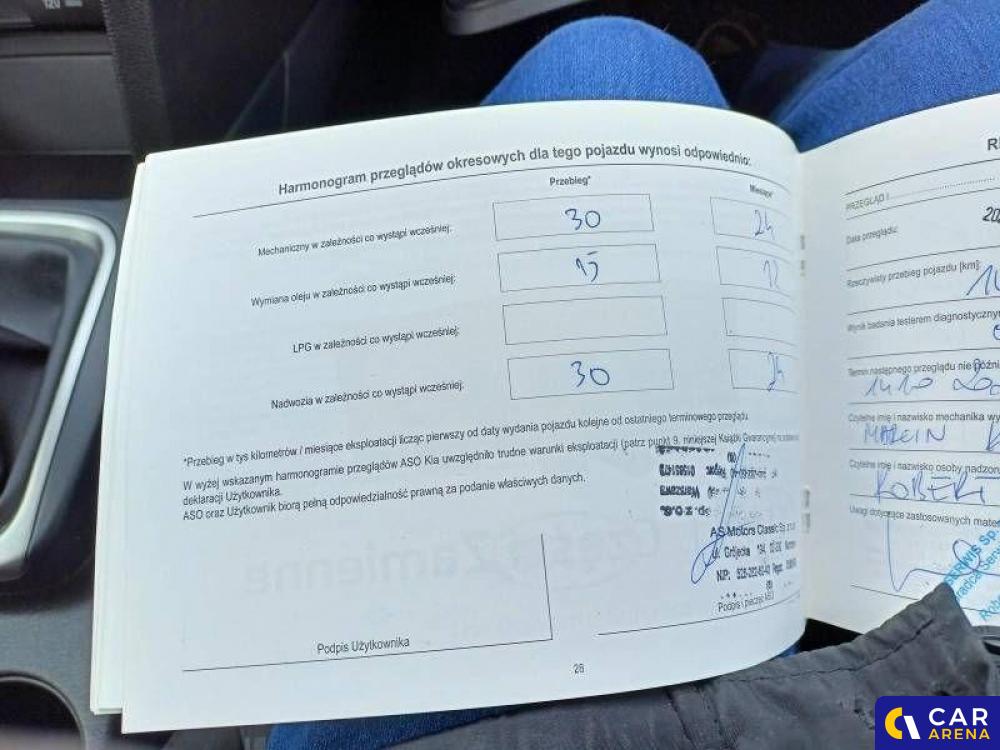 12V
Harmonogram przeglądów okresowych dla tego pojazdu wynosi odpowiednio:
Przebieg* Miesiące*
Mechaniczny w zależności co wystąpi wcześniej: 30 24
Wymiana oleju w zależności co wystąpi wcześniej: 15 12
LPG w zależności co wystąpi wcześniej:
Nadwozia w zależności co wystąpi wcześniej: 30 24
*Przebieg w tys kilometrów / miesiące eksploatacji licząc pierwszy od daty wydania pojazdu kolejne od ostatniego terminowego przeglądu
W wyżej wskazanym harmonogramie przeglądów ASO Kia uwzględniło trudne warunki eksploatacji (patrz punkt 9. niniejszej Książki Gwarancyjnej na podstawie
deklaracji Użytkownika.
ASO oraz Użytkownik biorą pełną odpowiedzialność prawną za podanie właściwych danych.
Warszawa
sp. z o.o.
AS Motors Classic Sp. z o.o.
ul. Grójecka
NIP:
Podpis i pieczęć ASO
Podpis Użytkownika
26
PRZEGLĄD I
Data przeglądu:
Rzeczywisty przebieg pojazdu [km]:
Wynik badania testerem diagnostycznym
Termin następnego przeglądu nie później
14.10
Czytelne imię i nazwisko mechanika
MARCIN
Czytelne imię i nazwisko osoby
ROBERT
Uwagi dotyczące zastosowanych
SERWIS Sp.
CAR
ARENA